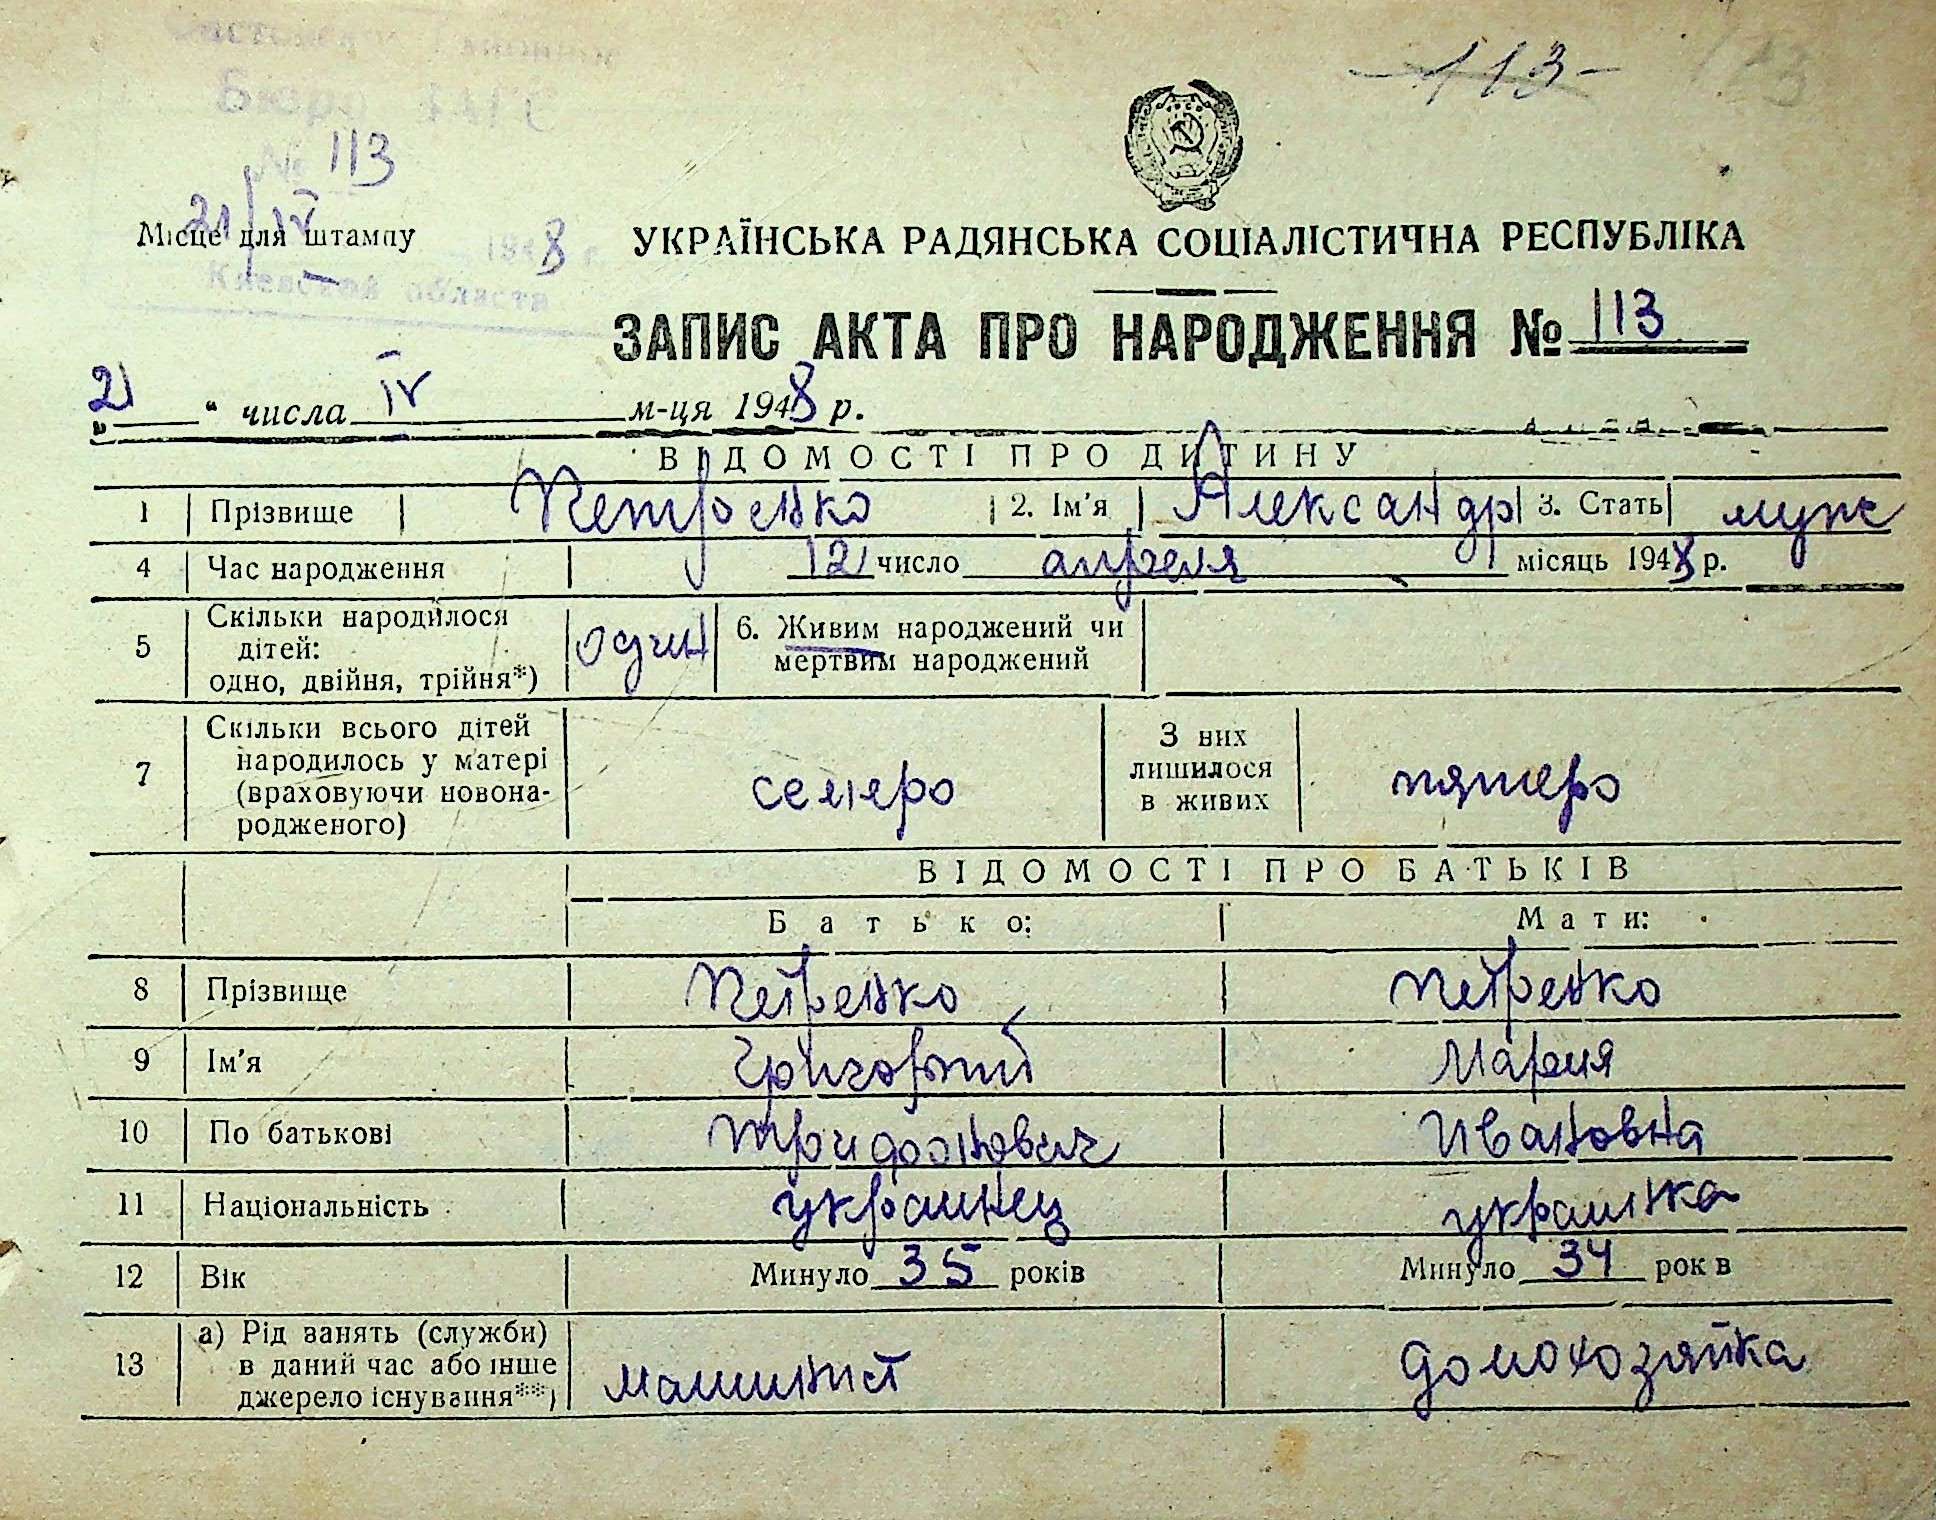 -113- 113
Бюро ЗАГС
№ 113
21/IV
Місце для штампу
1948 г.
Киевской области
УКРАЇНСЬКА РАДЯНСЬКА СОЦІАЛІСТИЧНА РЕСПУБЛІКА
ЗАПИС АКТА ПРО НАРОДЖЕННЯ № 113
„21“ числа IV м-ця 1948 р.
ВІДОМОСТІ ПРО ДИТИНУ
1 Прізвище Петренко 2. Ім'я Александр 3. Стать муж
4 Час народження 12 число апреля місяць 1948 р.
5 Скільки народилося дітей: одно, двійня, трійня*) один 6. Живим народжений чи мертвим народжений
7 Скільки всього дітей народилось у матері (враховуючи новонародженого) семеро З них лишилося в живих пятеро
ВІДОМОСТІ ПРО БАТЬКІВ
Батько: Мати:
8 Прізвище Петренко Петренко
9 Ім'я Григорий Мария
10 По батькові Трифонович Ивановна
11 Національність украинец украинка
12 Вік Минуло 35 років Минуло 34 рок в
13 а) Рід занять (служби) в даний час або інше джерело існування**) машинист домохозяйка